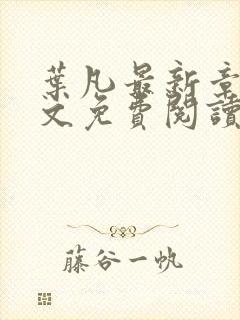 葉凡最新章
文免費閱讀
藤谷一帆